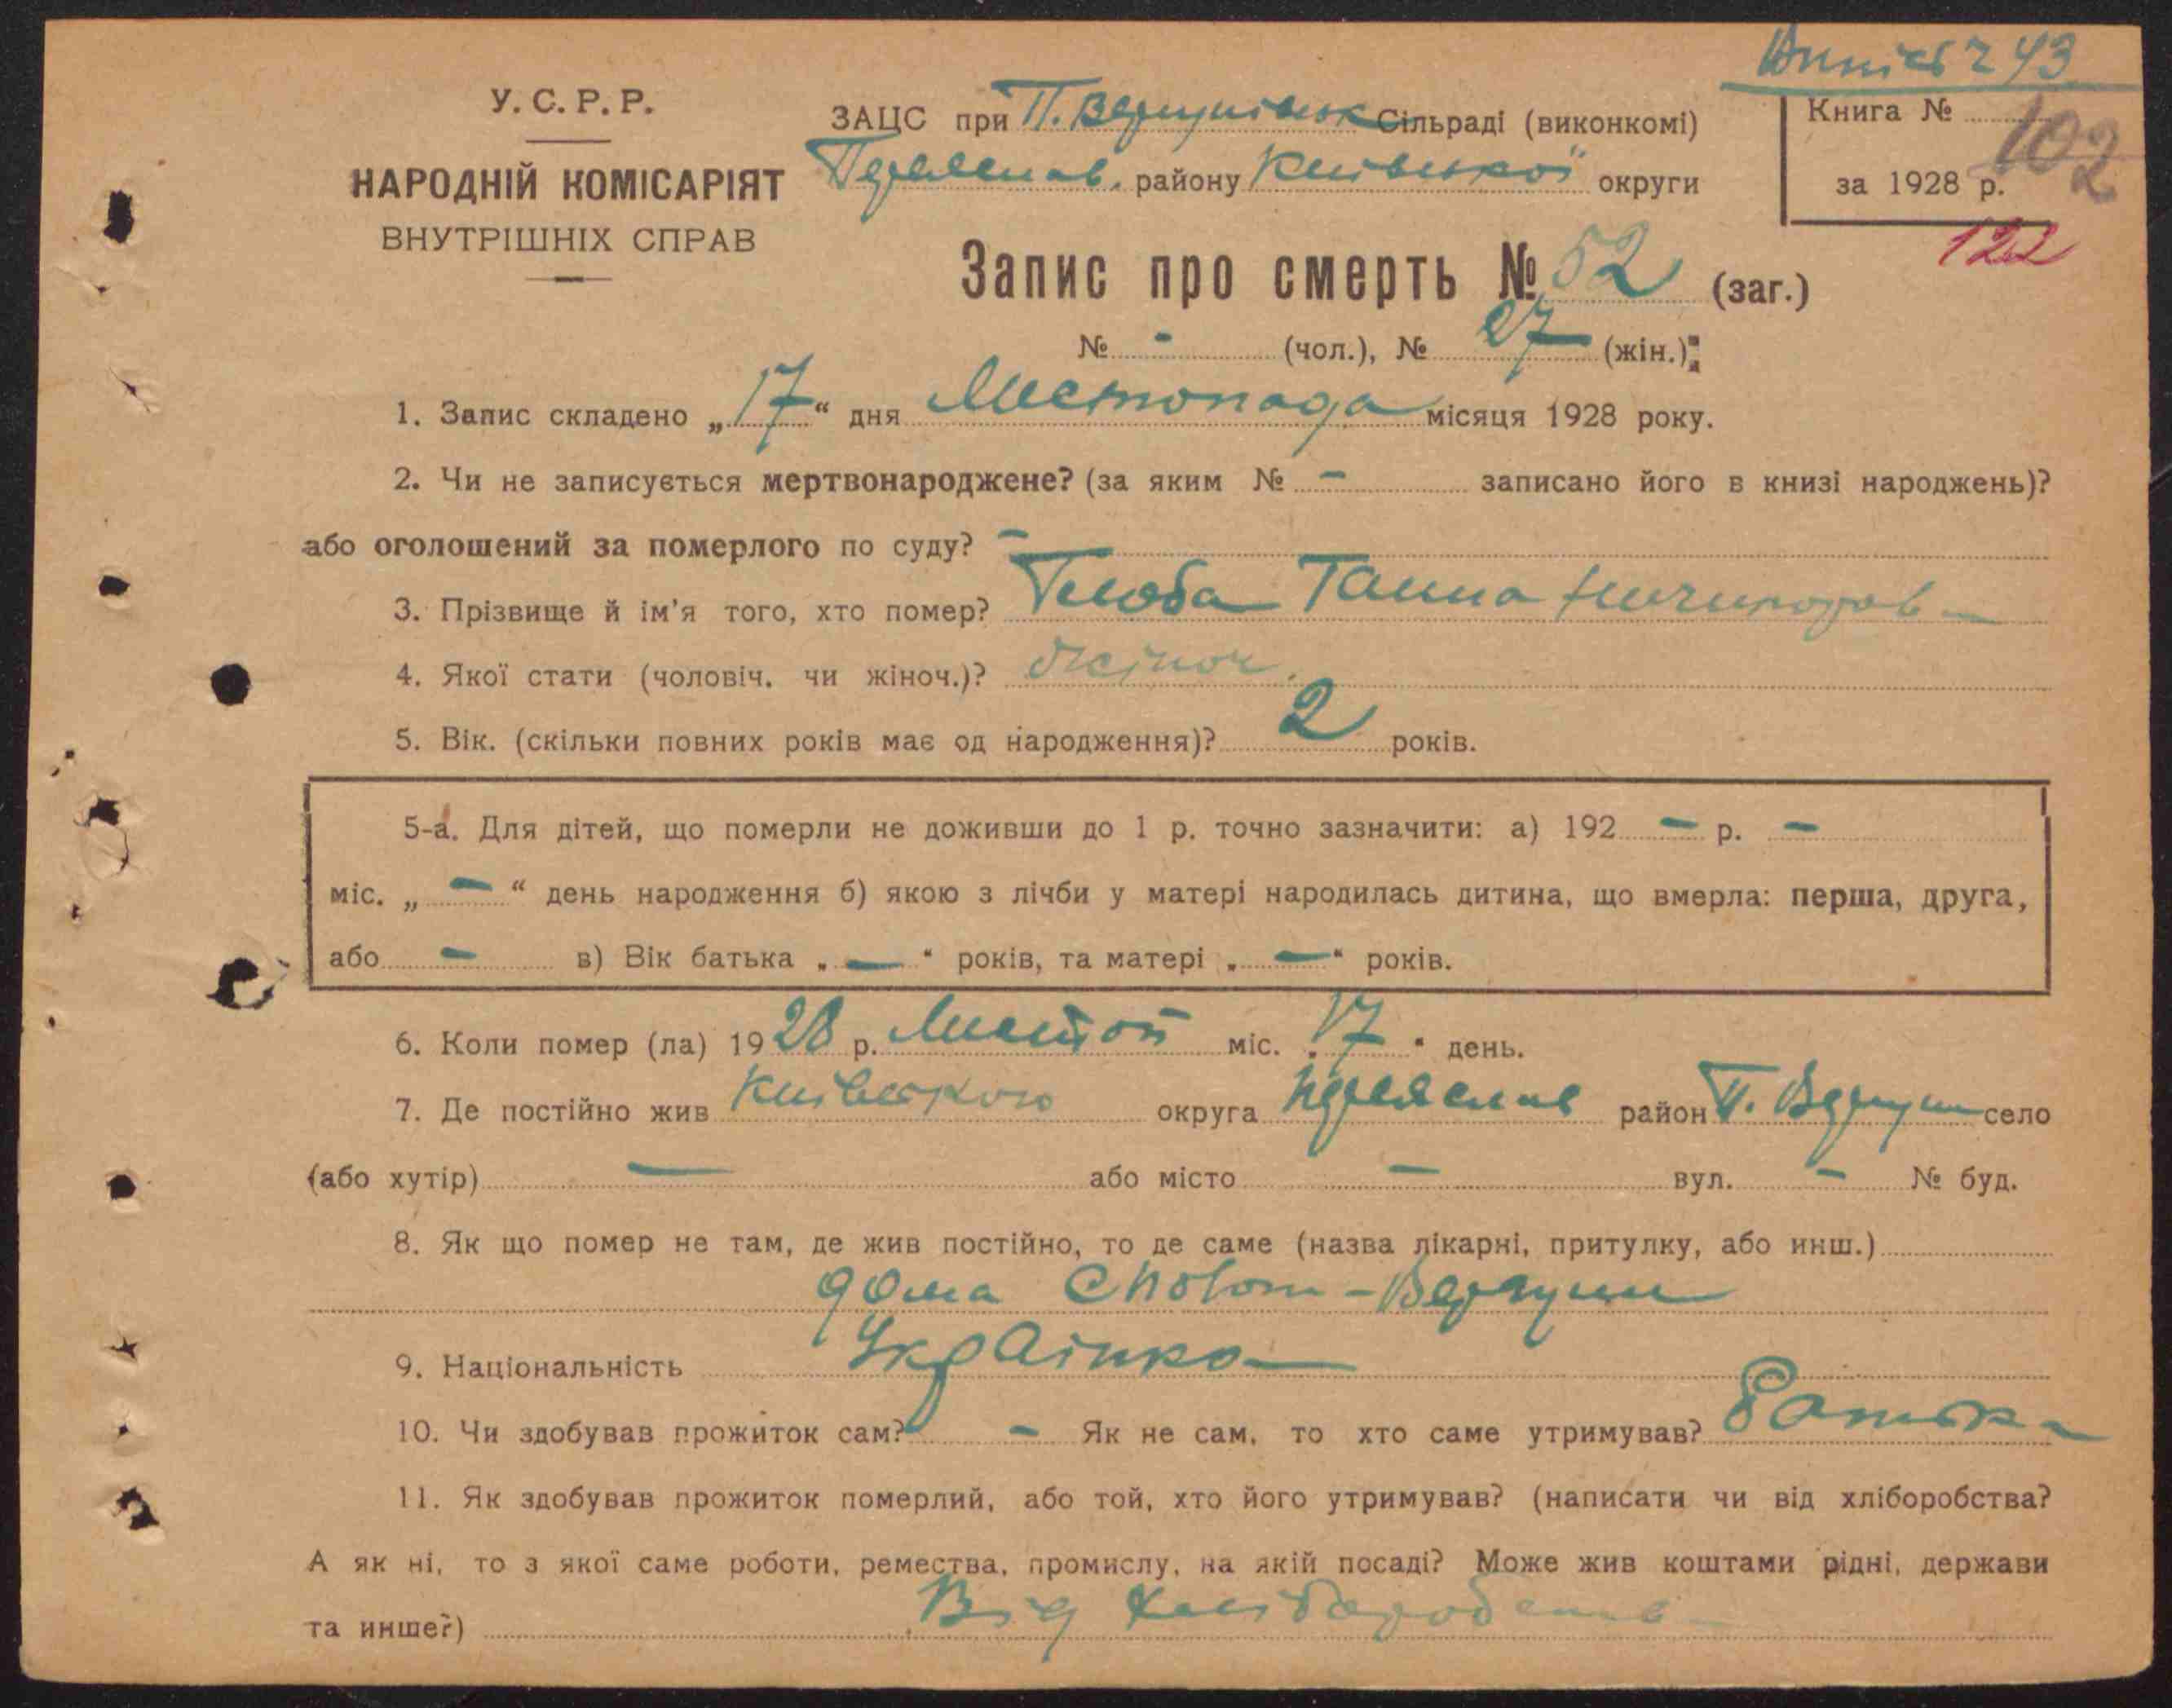 43
У. С. Р. Р.
НАРОДНІЙ КОМІСАРІЯТ
ВНУТРІШНІХ СПРАВ
ЗАЦС при П. Сільраді (виконкомі)
Переяслав. району Київської округи
Книга № 102
за 1928 р.
122
Запис про смерть № 52 (заг.)
№ - (чол.), № 27 (жін.);
1. Запис складено „17“ дня Листопада місяця 1928 року.
2. Чи не записується мертвонароджене? (за яким № - записано його в книзі народжень)?
або оголошений за померлого по суду? -
3. Прізвище й ім'я того, хто помер? Ганна Ничипоров
4. Якої стати (чоловіч. чи жіноч.)? жіноч.
5. Вік. (скільки повних років має од народження)? 2 років.
5-а. Для дітей, що померли не доживши до 1 р. точно зазначити: а) 192 - р. -
міс. „ - “ день народження б) якою з лічби у матері народилась дитина, що вмерла: перша, друга,
або - в) Вік батька „ - “ років, та матері „ - “ років.
6. Коли помер (ла) 1928 р. Листоп міс. „17“ день.
7. Де постійно жив Київського округа Переяслав район П. село
(або хутір) - або місто - вул. - № буд.
8. Як що помер не там, де жив постійно, то де саме (назва лікарні, притулку, або инш.)
дома
9. Національність Українка
10. Чи здобував прожиток сам? - Як не сам, то хто саме утримував? батька
11. Як здобував прожиток померлий, або той, хто його утримував? (написати чи від хліборобства?
А як ні, то з якої саме роботи, ремества, промислу, на якій посаді? Може жив коштами рідні, держави
та инше?) Від хліборобства